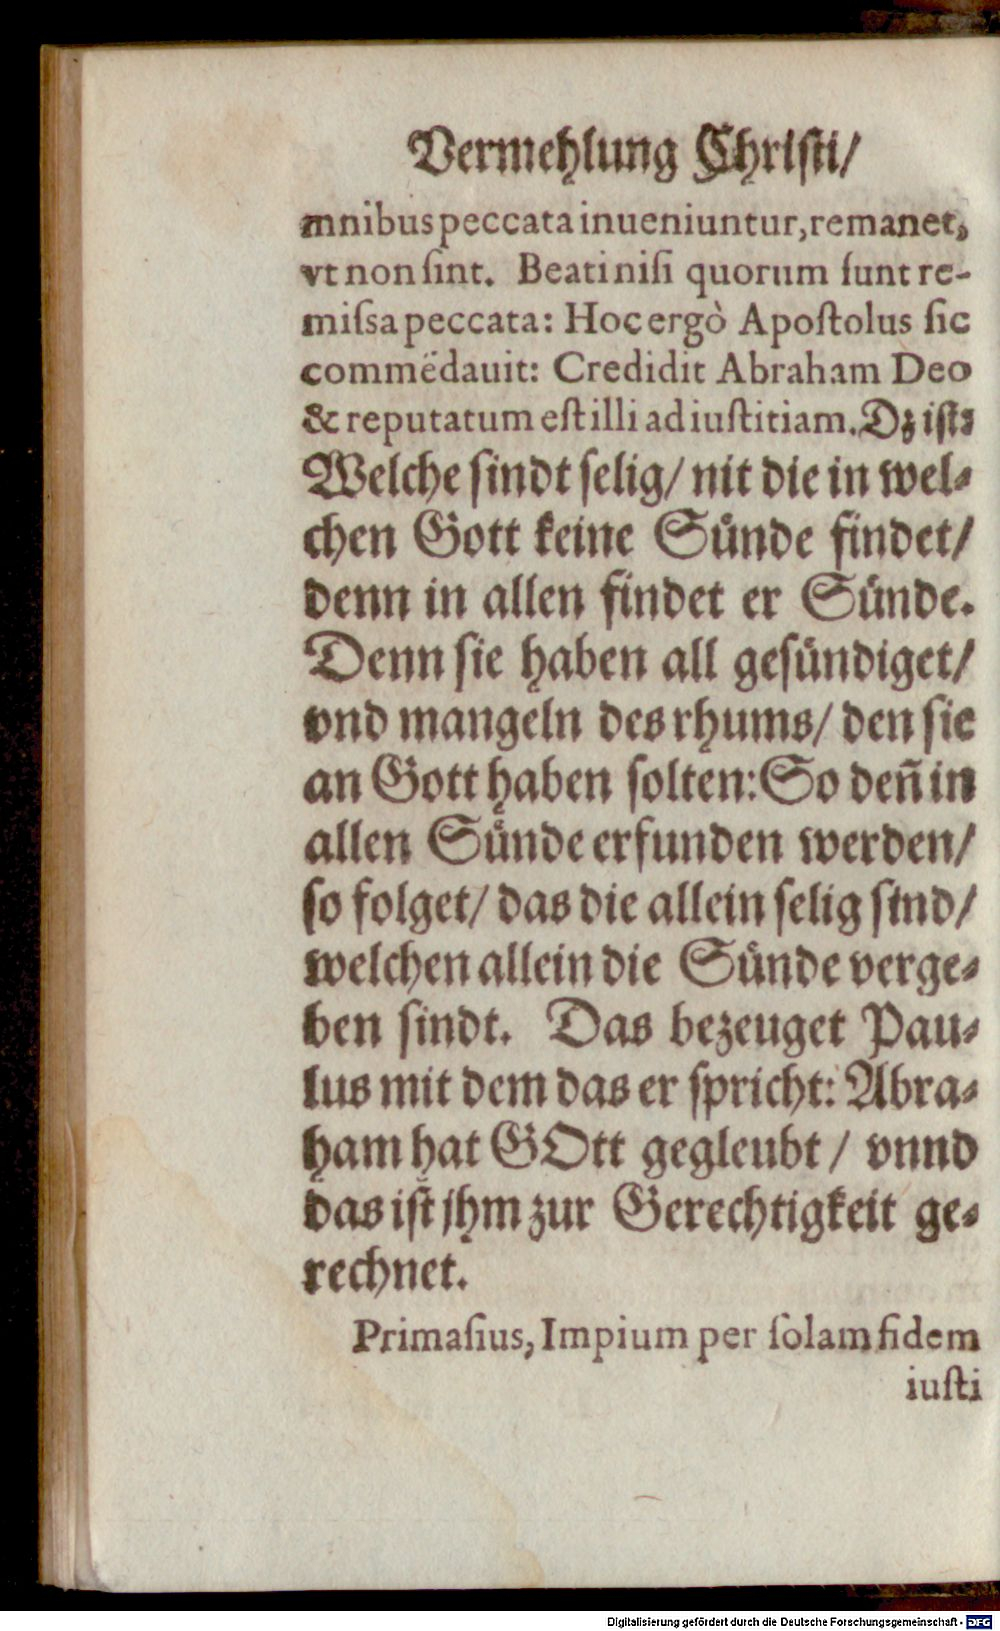 Vermehlung Christi/
mnibus peccata inueniuntur, remanet,
vt non ſint. Beati niſi quorum ſunt re-
miſsa peccata: Hoc ergò Apoſtolus ſic
commëdauit: Credidit Abraham Deo
& reputatum eſt illi ad iuſtitiam. Dz iſt:
Welche ſindt ſelig/ nit die in wel⸗
chen Gott keine Sünde findet/
denn in allen findet er Sünde.
Denn ſie haben all geſündiget/
vnd mangeln des rhums/ den ſie
an Gott haben ſolten: So deñ in
allen Sünde erfunden werden/
ſo folget/ das die allein ſelig ſind/
welchen allein die Sünde verge⸗
ben ſindt. Das bezeuget Pau⸗
lus mit dem das er ſpricht: Abra⸗
ham hat GOtt gegleubt / vnnd
das iſt jhm zur Gerechtigkeit ge⸗
rechnet.
Primaſius, Impium per ſolam fidem
iuſti
Digitalisierung gefördert durch die Deutsche Forschungsgemeinschaft - DFG